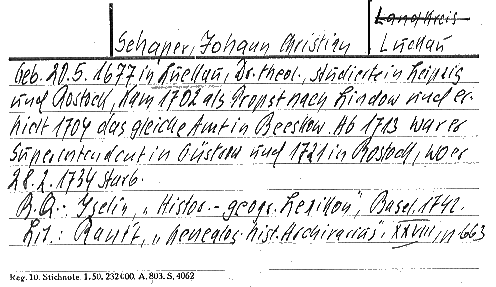 Landkreis
Schaper, Johann Christian Luckau
Geb. 20.5.1677 in Luckau, Dr. theol., studierte in Leipzig
und Rostock, kam 1702 als Propst nach Lindow und er-
hielt 1704 das gleiche Amt in Beeskow. Ab 1713 war er
Superintendent in Güstrow und 1721 in Rostock, wo er
28.2.1734 starb.
B.Q.: Iselin, „Histor.-geogr. Lexikon", Basel 1742.
Lit.: Ranft, „Genealog. hist. Archivarius". XXVIII, p 663
Reg. 10. Stichnote. 1. 50. 232000. A. 803. S. 4062